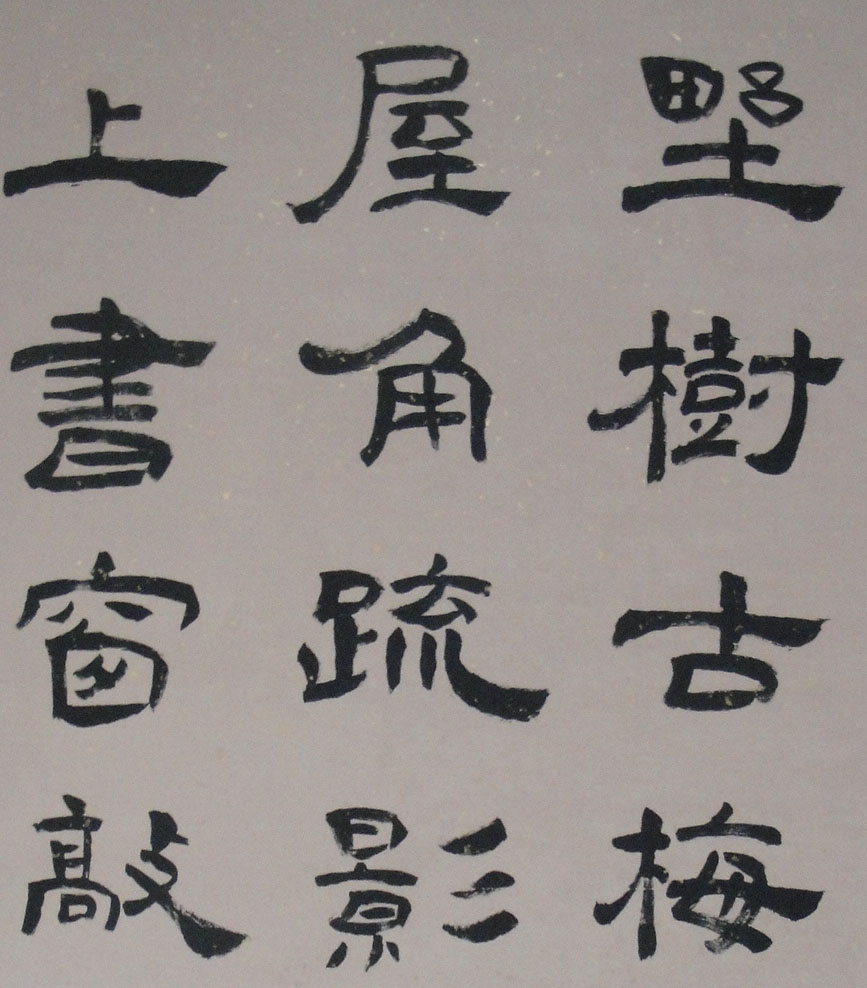 野樹古梅
屋角疏影
上書窗敲